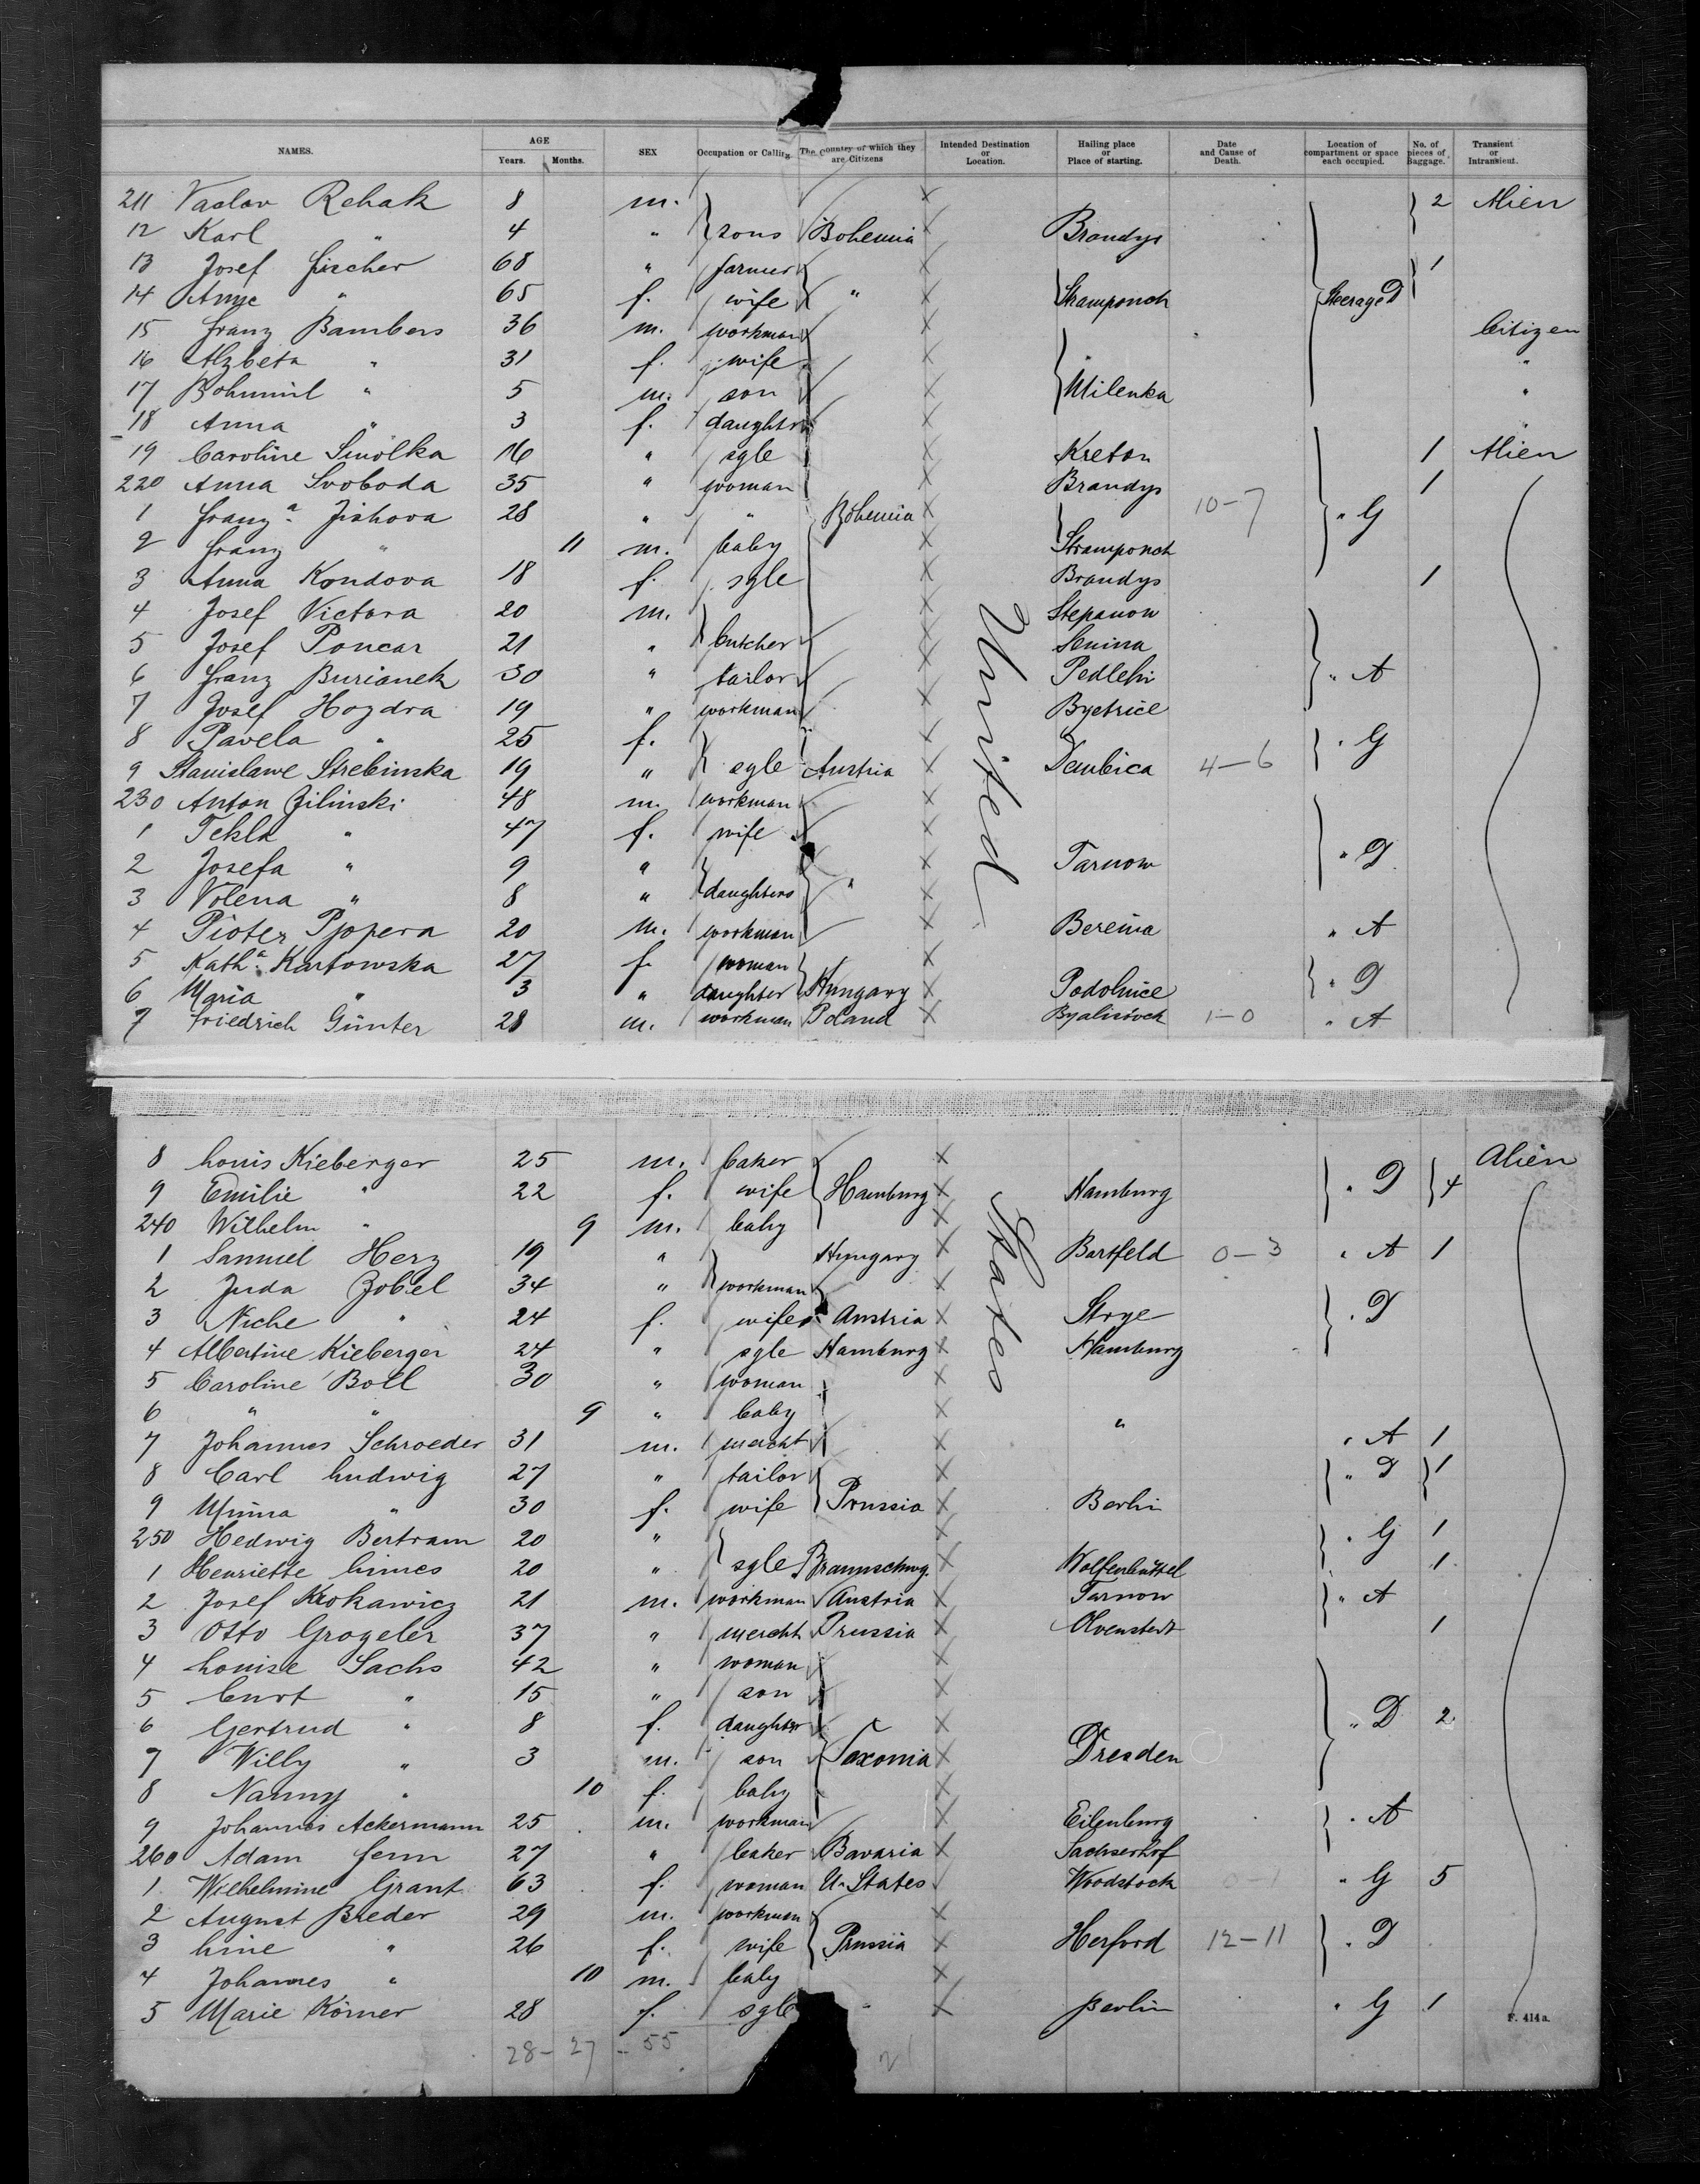 NAMES. AGE Years. Months. SEX Occupation or Calling. The Country of which they are Citizens Intended Destination or Location. Hailing place or Place of starting. Date and Cause of Death. Location of compartment or space each occupied. No. of pieces of Baggage. Transient or Intransient.
211 Vaclav Rehak 8 m. 2 Alien
12 Karl " 4 " sons Bohemia Brandys
13 Josef Fischer 68 " farmer 1
14 Anne " 65 f. wife " Stramponch Steerage D
15 Franz Bambers 36 m. workman Citizen
16 Alzbeta " 31 f. wife "
17 Bohumil " 5 m. son Milenka "
18 Anna " 3 f. daughter "
19 Caroline Smolka 16 " sgle Kreton 1 Alien
220 Anna Svoboda 35 " woman Brandys 1
1 Franz^a Jishova 28 " " Bohemia 10-7 " G
2 Franz " 11 m. baby Stramponch
3 Anna Kondova 18 f. sgle Brandys 1
4 Josef Victora 20 m. Stepanow
5 Josef Poncar 21 " butcher Senina
6 Franz Burianek 30 " tailor Pedlehi " A
7 Josef Hozdra 19 " workman Bystrice
8 Pavela " 25 f. " G
9 Stanislawe Strebinska 19 " sgle Austria Dembica 4-6
230 Anton Zilinski 48 m. workman
1 Tekla " 47 f. wife
2 Josefa " 9 " Tarnow " D
3 Volena " 8 " daughters "
4 Pioter Pjopera 20 m. workman Bereina " A
5 Kath^a Kartowska 27 f. woman
6 Maria " 3 " daughter Hungary Podolnice " D
7 Friedrich Günter 28 m. workman Poland 1-0 " A
United States
8 Louis Kieberger 25 m. baker Alien
9 Emilie " 22 f. wife Hamburg Hamburg " D 4
240 Wilhelm " 9 m. baby
1 Samuel Herz 19 " Hungary Bartfeld 0-3 " A 1
2 Juda Zobel 34 " workman
3 Niche " 24 f. wife Austria Strye " D
4 Albertine Kieberger 24 " sgle Hamburg Hamburg
5 Caroline Boll 30 " woman
6 " " 9 " baby "
7 Johannes Schroeder 31 m. mercht " A 1
8 Carl Ludwig 27 " tailor " D 1
9 Minna " 30 f. wife Prussia Berlin
250 Hedwig Bertram 20 " " G 1
1 Henriette Limes 20 " sgle Braunschwg. Wolfenbüttel 1
2 Josef Krokawicz 21 m. workman Austria Tarnow " A
3 Otto Grogeler 37 " mercht Prussia Olvenstedt 1
4 Louise Sachs 42 " woman
5 Curt " 15 " son
6 Gertrud " 8 f. daughter " D 2
7 Willy " 3 m. son Saxonia Dresden
8 Nanny " 10 f. baby
9 Johannes Ackermann 25 m. workman Eilenburg " A
260 Adam Fenn 27 " baker Bavaria Sachserhof
1 Wilhelmine Grant 63 f. woman U. States Woodstock 0-1 " G 5
2 August Breder 29 m. workman
3 Line " 26 f. wife Prussia Herford 12-11 " D
4 Johannes " 10 m. baby
5 Marie Körner 28 f. sgle " Berlin " G 1
F. 414a.
28-27-55